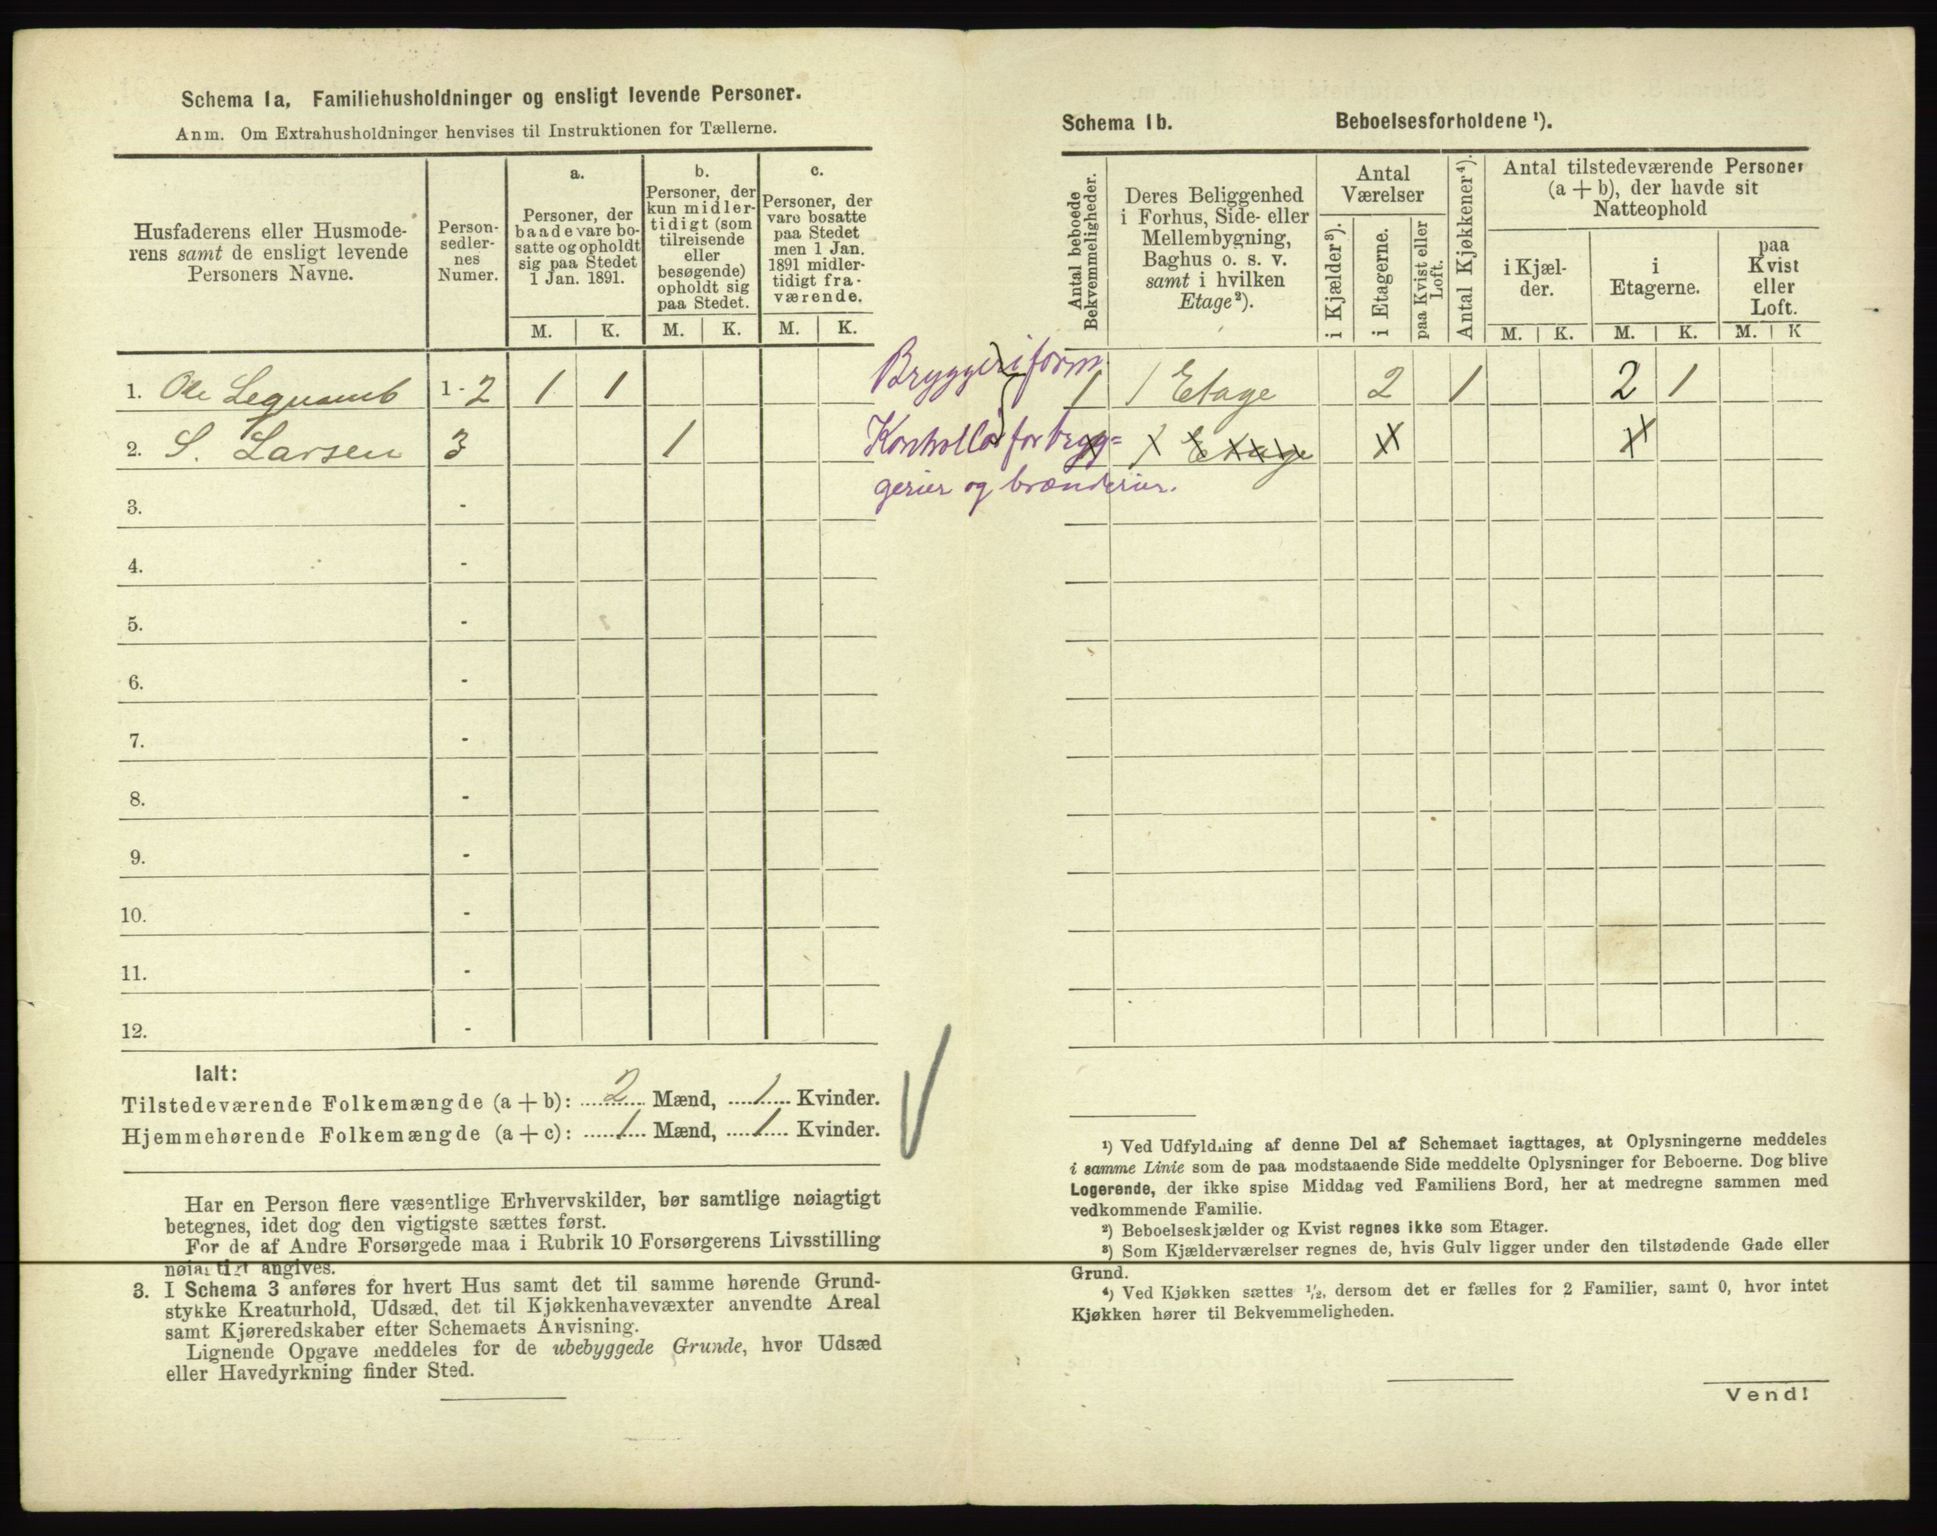 Schema 1a, Familiehusholdninger og ensligt levende Personer.
Anm. Om Extrahusholdninger henvises til Instruktionen for Tællerne.
Husfaderens eller Husmode-
rens samt de ensligt levende
Personers Navne.
Person-
sedler-
nes
Numer.
a.
Personer, der
baade vare bo-
satte og opholdt
sig paa Stedet
1 Jan. 1891.
b.
Personer, der
kun midler-
tidigt (som
tilreisende
eller
besøgende)
opholdt sig
paa Stedet.
c.
Personer, der
vare bosatte
paa Stedet
men 1 Jan.
1891 midler-
tidigt fra-
værende.
M. K. M. K. M. K.
1. Ole 1-2 1 1
2. S. Larsen 3 1
3. -
4. -
5. -
6. -
7. -
8. -
9. -
10. -
11. -
12. -
Ialt:
Tilstedeværende Folkemængde (a+b): 2 Mænd, 1 Kvinder.
Hjemmehørende Folkemængde (a+c): 1 Mænd, 1 Kvinder.
Har en Person flere væsentlige Erhvervskilder, bør samtlige nøiagtigt
betegnes, idet dog den vigtigste sættes først.
For de af Andre Forsørgede maa i Rubrik 10 Forsørgerens Livsstilling
nøiagtigt angives.
3. I Schema 3 anføres for hvert Hus samt det til samme hørende Grund-
stykke Kreaturhold, Udsæd, det til Kjøkkenhavevæxter anvendte Areal
samt Kjøreredskaber efter Schemaets Anvisning.
Lignende Opgave meddeles for de ubebyggede Grunde, hvor Udsæd
eller Havedyrkning finder Sted.
Schema 1b. Beboelsesforholdene ¹).
Antal beboede
Bekvemmeligheder.
Deres Beliggenhed
i Forhus, Side- eller
Mellembygning,
Baghus o. s. v.
samt i hvilken
Etage²).
Antal
Værelser
i Kjælder³).
i Etagerne.
paa Kvist eller
Loft.
Antal Kjøkkener⁴).
Antal tilstedeværende Personer
(a+b), der havde sit
Natteophold
i Kjæl-
der.
i
Etagerne.
paa
Kvist
eller
Loft.
M. K. M. K. M. K
Bryggeriform.
1 1 Etage 2 1 2 1
Kontrollør for bryg=
1 Etage
gerier og brænderier.
¹) Ved Udfyldning af denne Del af Schemaet iagttages, at Oplysningerne meddeles
i samme Linie som de paa modstaaende Side meddelte Oplysninger for Beboerne. Dog blive
Logerende, der ikke spise Middag ved Familiens Bord, her at medregne sammen med
vedkommende Familie.
²) Beboelseskjælder og Kvist regnes ikke som Etager.
³) Som Kjælderværelser regnes de, hvis Gulv ligger under den tilstødende Gade eller
Grund.
⁴) Ved Kjøkken sættes ½, dersom det er fælles for 2 Familier, samt 0, hvor intet
Kjøkken hører til Bekvemmeligheden.
Vend!